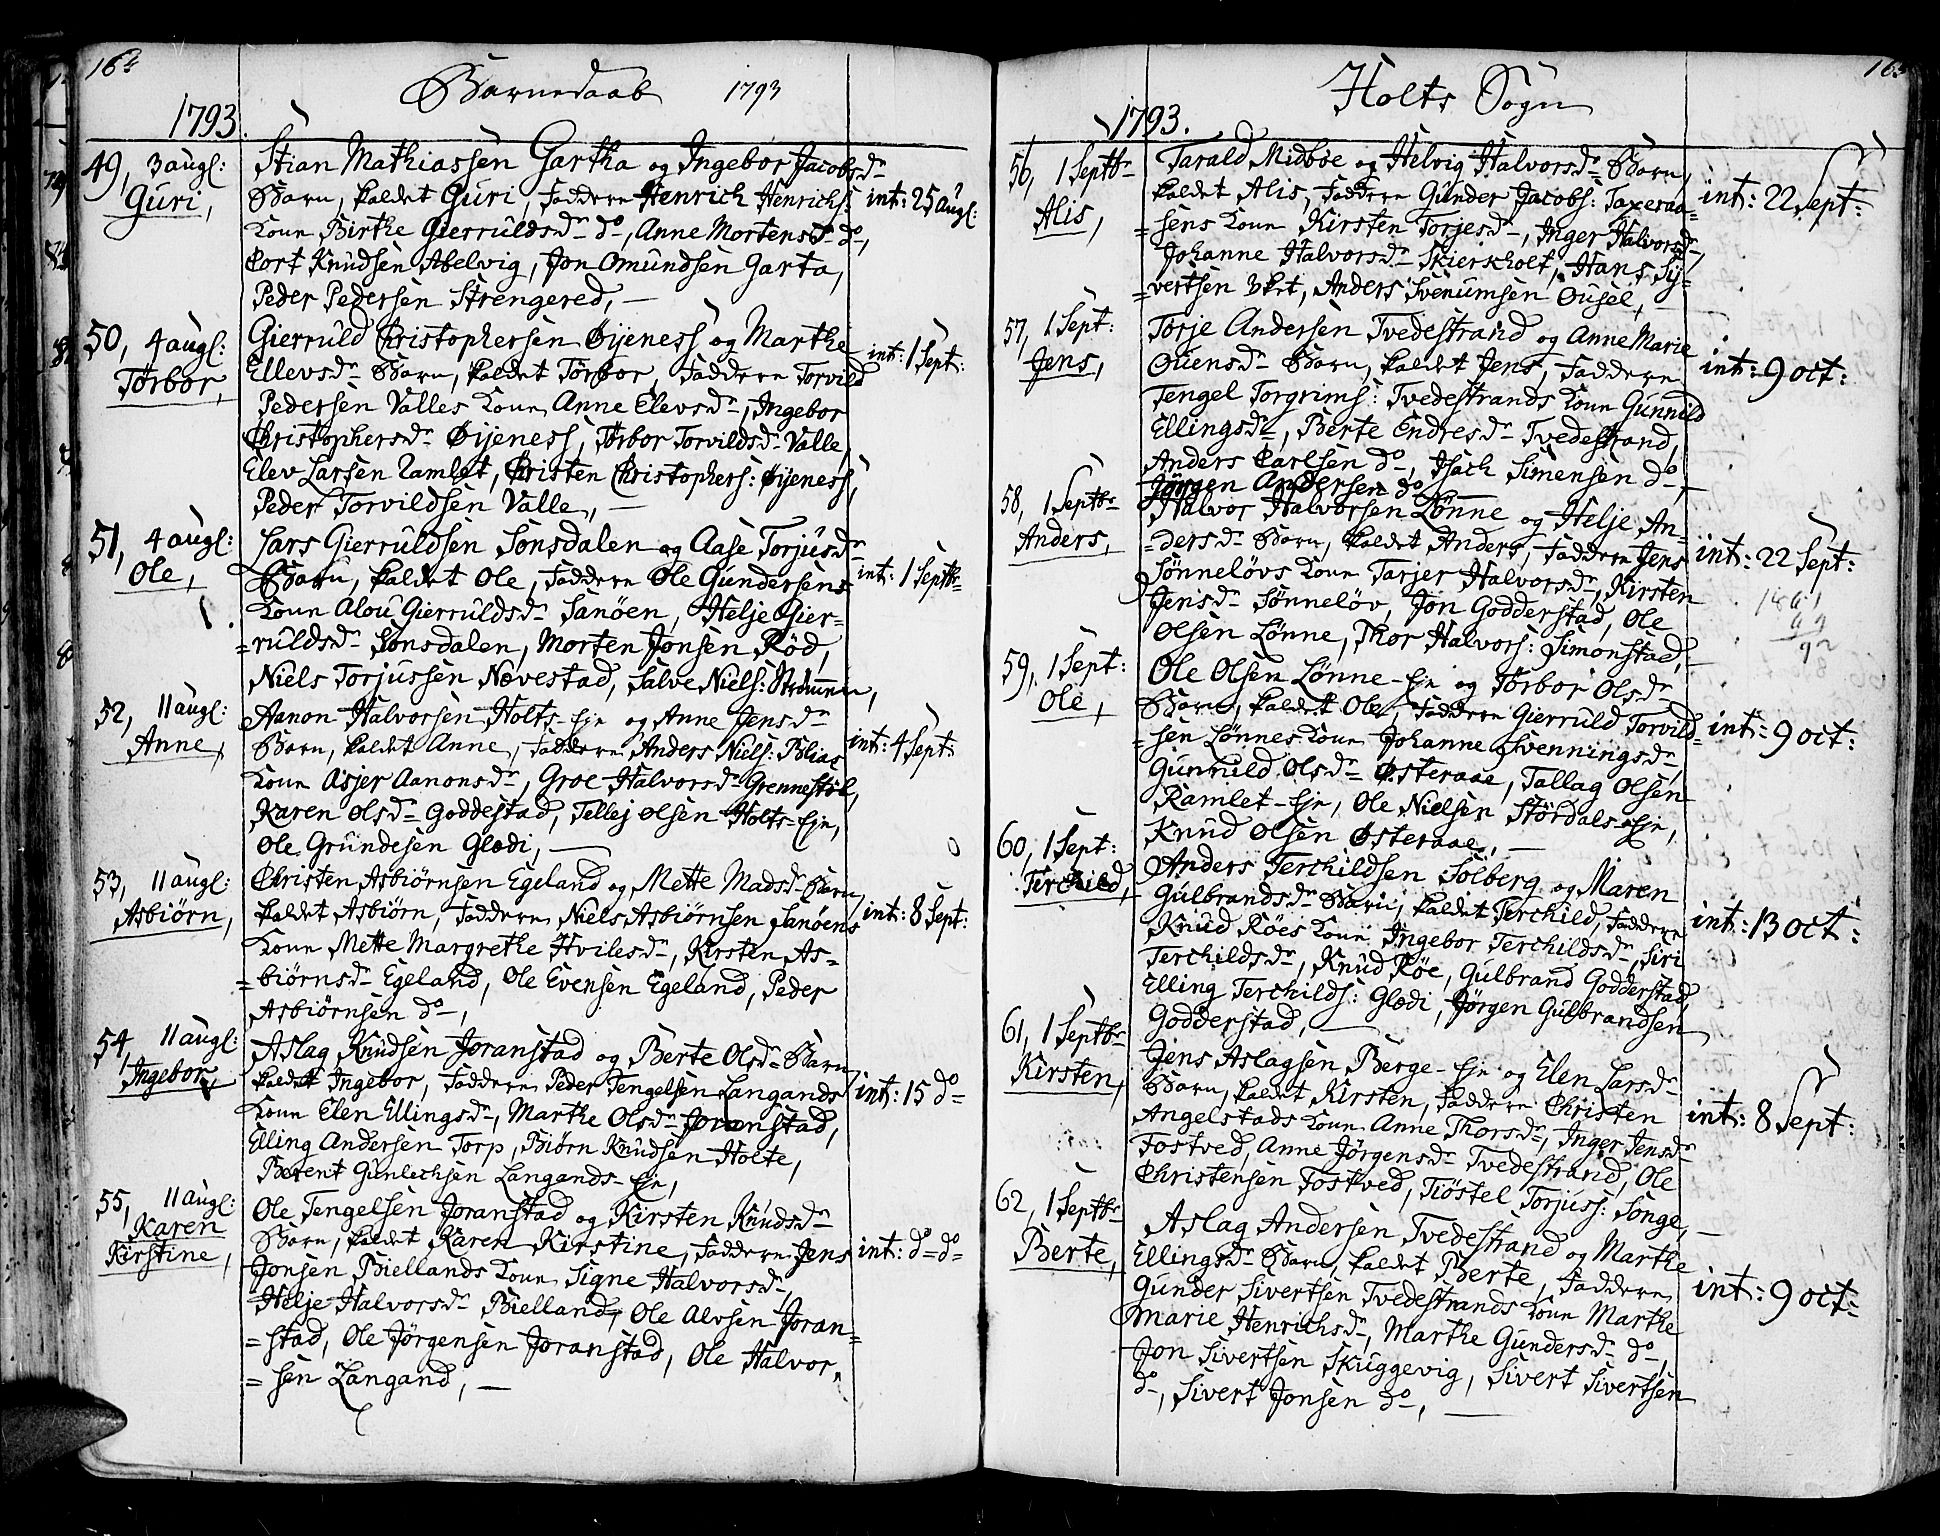 164
Barnedaab 1793
1793.
49, 3 augl: Stian Mathiassen Gartha og Ingebor Jacobsd
Guri, Barn, kaldet Guri, Faddere Henrich Henrichs: int: 25 augl:
Koun Birthe Gierruldsd do, Anne Mortensd do,
Cort Knudsen Abelvig, Jon Omundsen Garta,
Peder Pedersen Strengered,
50, 4 augl: Gierruld Christophersen Øyeness og Marthe int: 1 Sept:
Torbor, Ellevsd Barn, kaldet Torbor, Faddere Torvild
Pedersen Valles Koun Anne Elevsd, Ingebor
Christophersd Øyeness, Torbor Torvildsd Valle,
Elev Larsen Ramlet, Christen Christophers: Øyeness,
Peder Torvildsen Valle,
51, 4 augl: Lars Gierruldsen Sonsdalen og Aase Torjusd
Ole, Barn, kaldet Ole, Faddere Ole Gundersens int: 1 Septbr
Koun Alou Gierruldsd Sanöen, Helje Gier-
=ruldsd Sonsdalen, Morten Jonsen Röd,
Niels Torjussen Nævestad, Salve Niels: Strömmen,
52, 11 augl: Aanon Halvorsen Holts-Eje og Anne Jensd
Anne, Barn, kaldet Anne, Faddere Anders Niels: Blias int: 4 Sept:
Koun Asjer Aanonsd, Groe Halvorsd Grennestöl,
Karen Olsd Goddestad, Tellej Olsen Holts-Eje,
Ole Grundesen Glædi,
53, 11 augl: Christen Asbiörnsen Egeland og Mette Madsd Barn,
Asbiörn, kaldet Asbiörn, Faddere Niels Asbiörnsen Sanöens int: 8 Sept:
Koun Mette Margrethe Hvilesd, Kirsten As-
=biörnsd Egeland, Ole Evensen Egeland, Peder
Asbiörnsen do,
54, 11 augl: Aslag Knudsen Joranstad og Berte Olsd Barn,
Ingebor, kaldet Ingebor, Faddere Peder Tengelsen Langands int: 15 do
Koun Elen Ellingsd, Marthe Olsd Joranstad,
Elling Andersen Torp, Biörn Knudsen Holte,
Berent Gunlechsen Langands-Eje,
55, 11 augl: Ole Tengelsen Joranstad og Kirsten Knudsd
Karen Kirstine, Barn, kaldet Karen Kirstine, Faddere Jens int: do do
Jonsen Biellands Koun Signe Halvorsd,
Helje Halvorsd Bielland, Ole Alvsen Joran=
=stad, Ole Jörgensen Joranstad, Ole Halvor=
=sen Langand,
165
Holts Sogn
1793.
56, 1 Septbr Tarald Midböe og Helvig Halvorsd Barn,
Alis, kaldet Alis, Faddere Gunder Jacobs: Taxeraa- int: 22 Sept:
=sens Koun Kirsten Torjesd, Inger Halvorsd
Johanne Halvorsd Skierkholt, Hans Sy=
=vertsen, Anders Svenumsen Ousel,
57, 1 Sept: Torje Andersen Tvedestrand og Anne Marie
Jens, Ouensd Barn, kaldet Jens, Faddere int: 9 oct:
Tengel Torgrims: Tvedestrands Koun Gunnild
Ellingsd, Berte Endresd Tvedestrand,
Anders Carlsen do, Isach Simensen do,
Jörgen Andersen do
58, 1 Septbr Halvor Halvorsen Lönne og Helje An-
Anders, =dersd Barn, kaldet Anders, Faddere Jens int: 22 Sept:
Sönnelövs Koun Tarjer Halvorsd, Kirsten
Jensd Sönnelöv, Jon Godderstad, Ole
Olsen Lönne, Thor Halvors: Simonstad,
59, 1 Sept: Ole Olsen Lönne-Eje og Torbor Olsd
Ole, Barn, kaldet Ole, Faddere Gierruld Torvild= int: 9 oct:
=sen Lönnes Koun Johanne Svenningsd,
Gunnild Olsd Østeraae, Tallag Olsen
Ramlet-Eje, Ole Nielsen Stördals-Eje,
Knud Olsen Østeraae,
60, 1 Sept: Anders Terchildsen Solberg og Maren
Terchild, Gulbrandsd Barn, kaldet Terchild, Faddere int: 13 oct:
Knud Röes Koun Ingebor Terchildsd, Siri
Terchildsd, Knud Röe, Gulbrand Godderstad,
Elling Terchilds: Glædi, Jörgen Gulbrandsen
Godderstad,
61, 1 Septbr Jens Aslagsen Berge-Eje og Elen Larsd
Kirsten, Barn, kaldet Kirsten, Faddere Christen int: 8 Sept:
Angelstads Koun Anne Thorsd, Inger Jensd
Fostved, Anne Jörgensd Tvedestrand, Ole
Christensen Fostved, Tiöstel Torjuss: Songe,
62, 1 Septbr Aslag Andersen Tvedestrand og Marthe
Berte, Ellingsd Barn, kaldet Berte, Faddere int: 9 oct:
Gunder Sivertsen Tvedestrands Koun Marthe
Marie Henrichsd, Marthe Gundersd do,
Jon Sivertsen Skuggevig, Sivert Sivertsen
do, Sivert Jonsen do,